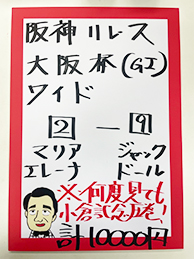 阪神11レース
大阪杯(GI)
ワイド
2 — 9
マリア ジャック
エレーナ ドール
※何度見ても
小倉
計10000円